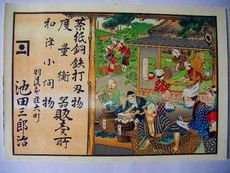 茶紙銅鉄打刃物
度量衡器販賣所
和洋小間物
羽後本荘大町
池田三郎治